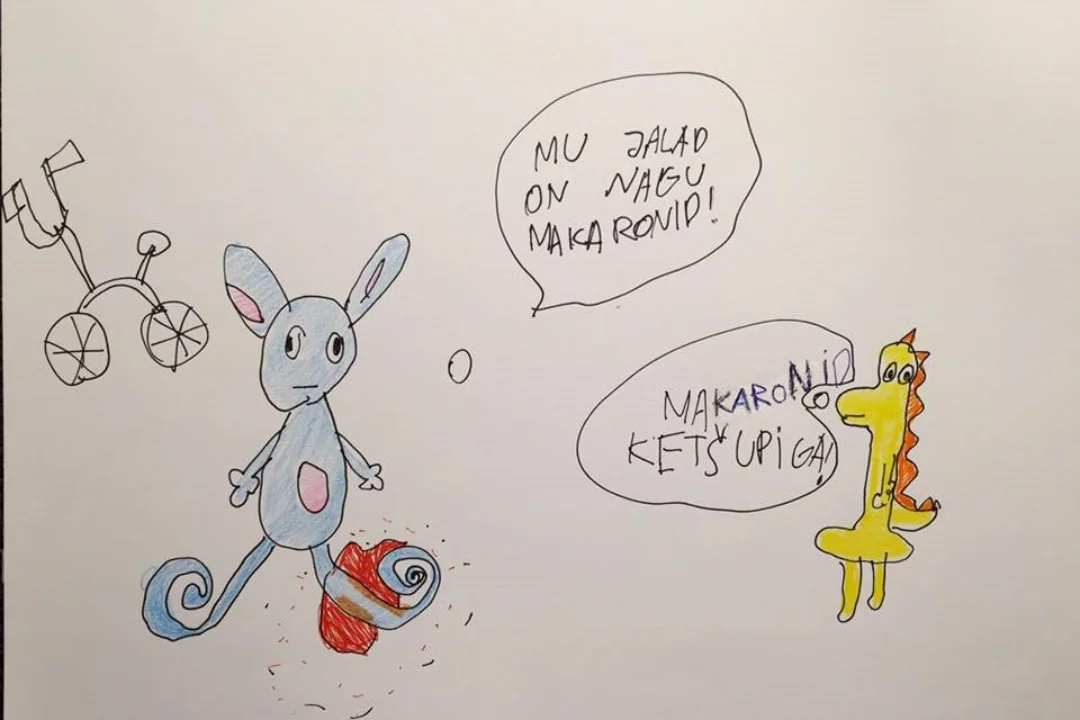 MU JALAD
ON NAGU
MAKARONID!
MAKARONID
KETŠUPIGA!